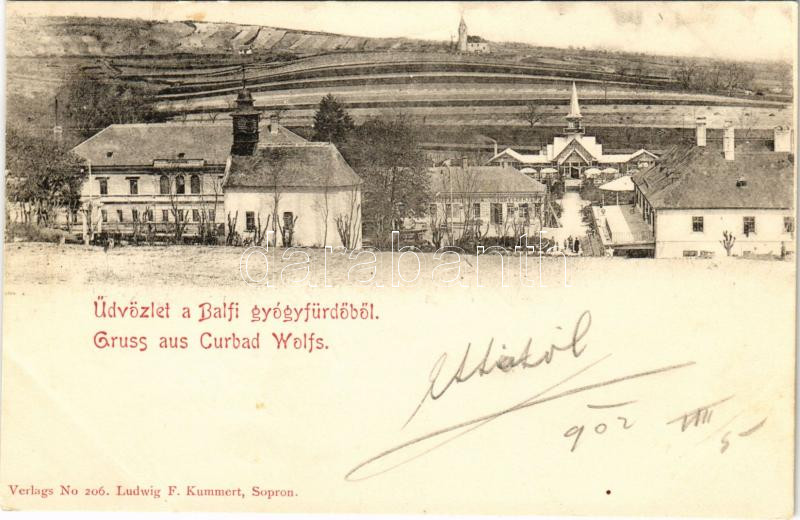 darabanth
Üdvözlet a Balfi gyógyfürdőből.
Gruss aus Curbad Wolfs.
902 VIII 5
Verlags No 206. Ludwig F. Kummert, Sopron.